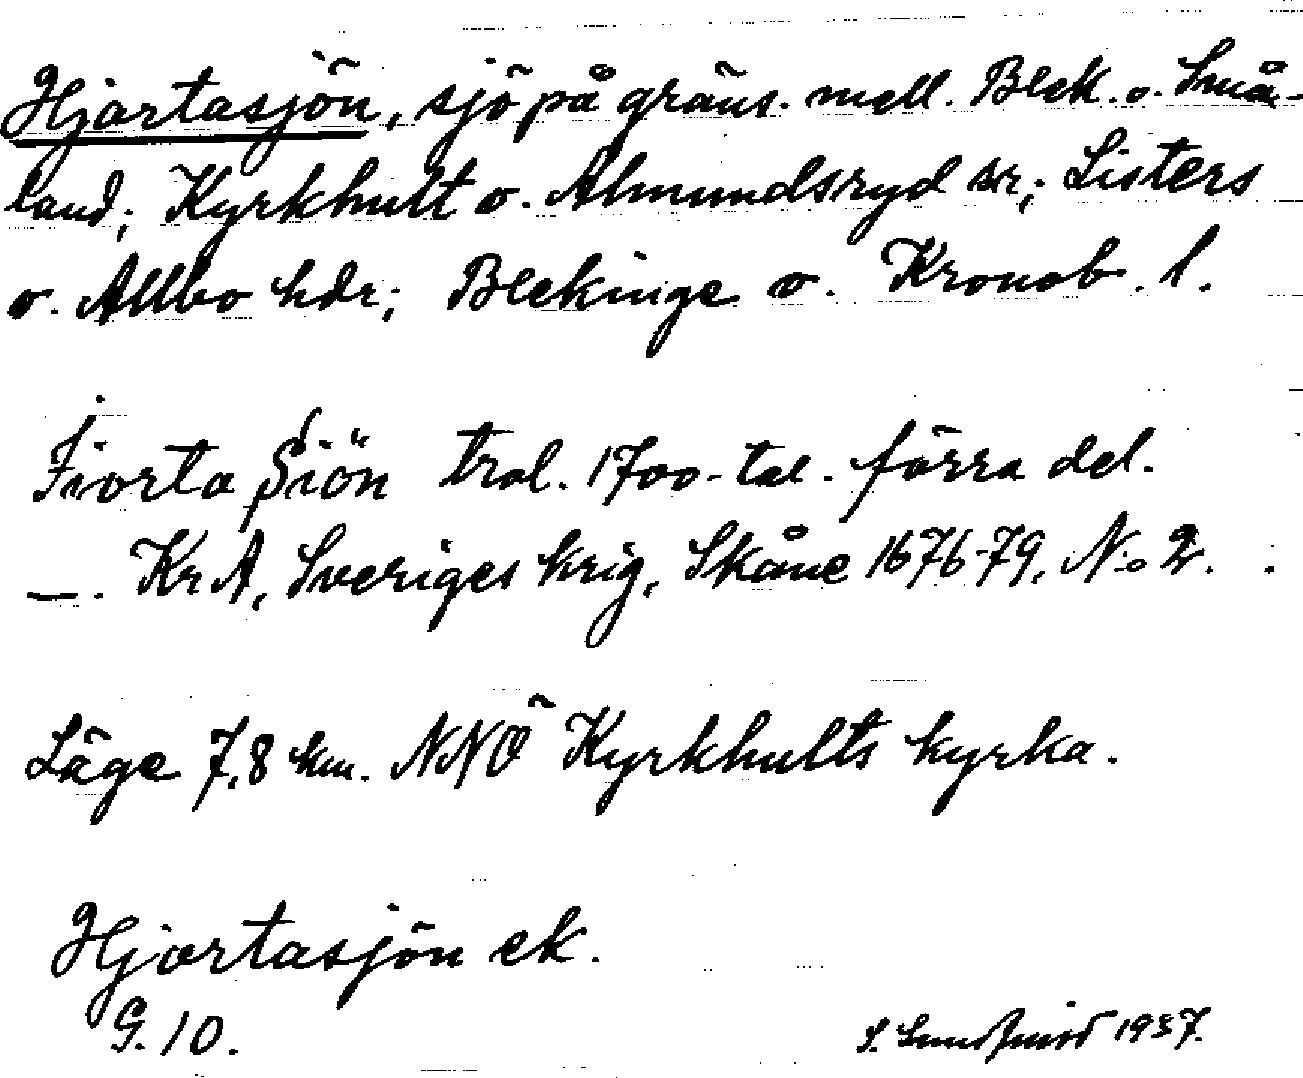 Hjortasjön, sjö på gräns. mell. Blek. o. Små-
land; Kyrkhult o. Almundsryd snr; Listers
o. Allbo hdr; Blekinge o. Kronob. l.
Jiorta Siön trol. 1700-tal. förra del.
—. KrA, Sveriges krig, Skåne 1676-79, No 2.
Läge 7,8 km. NNÖ Kyrkhults kyrka.
Hjortasjön ek.
G. 10.
S. 1937.